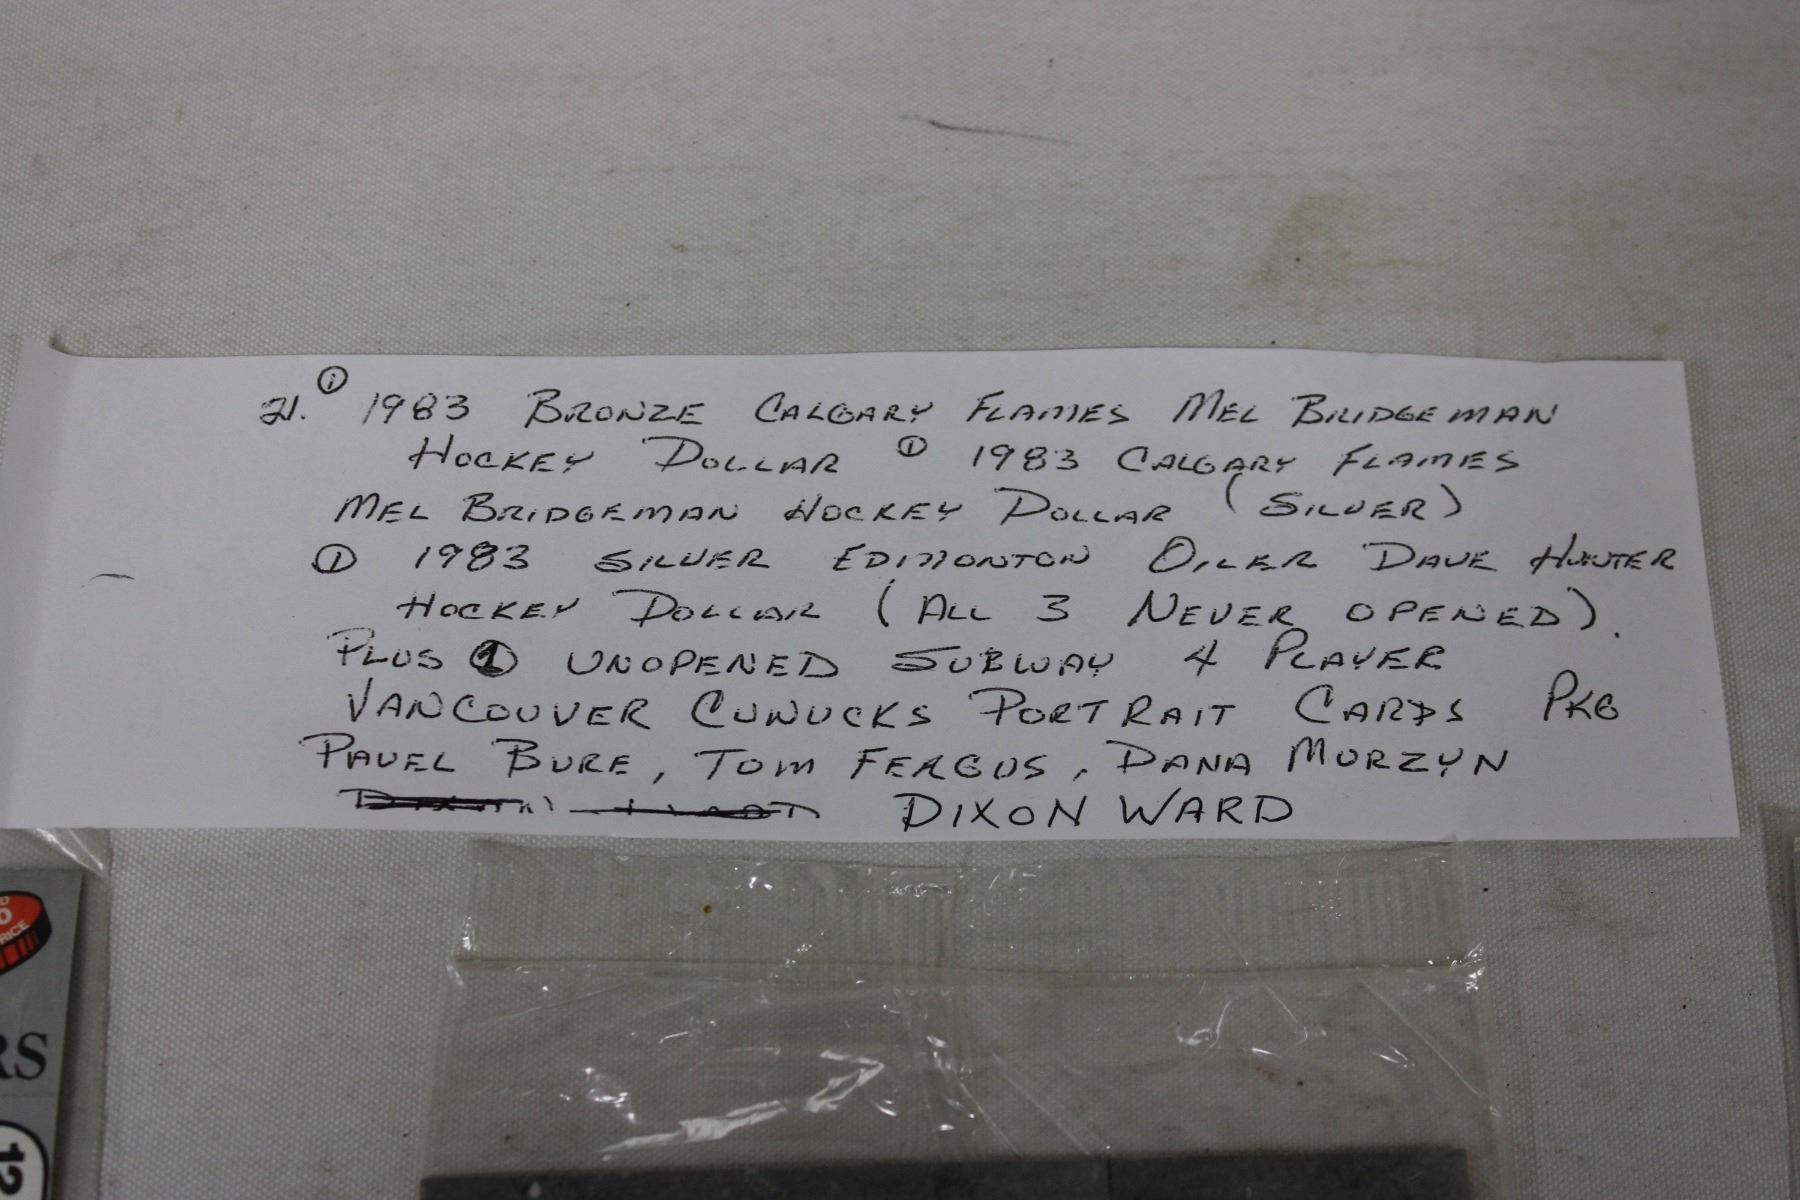 21. ① 1983 BRONZE CALGARY FLAMES MEL BRIDGEMAN
HOCKEY DOLLAR ① 1983 CALGARY FLAMES
MEL BRIDGEMAN HOCKEY DOLLAR (SILVER)
① 1983 SILVER EDMONTON OILER DAVE HUNTER
HOCKEY DOLLAR (ALL 3 NEVER OPENED).
PLUS ① UNOPENED SUBWAY 4 PLAYER
VANCOUVER CUNUCKS PORTRAIT CARDS PKG
PAVEL BURE, TOM FERGUS, DANA MURZYN
DIXON WARD
RICE
RS
12